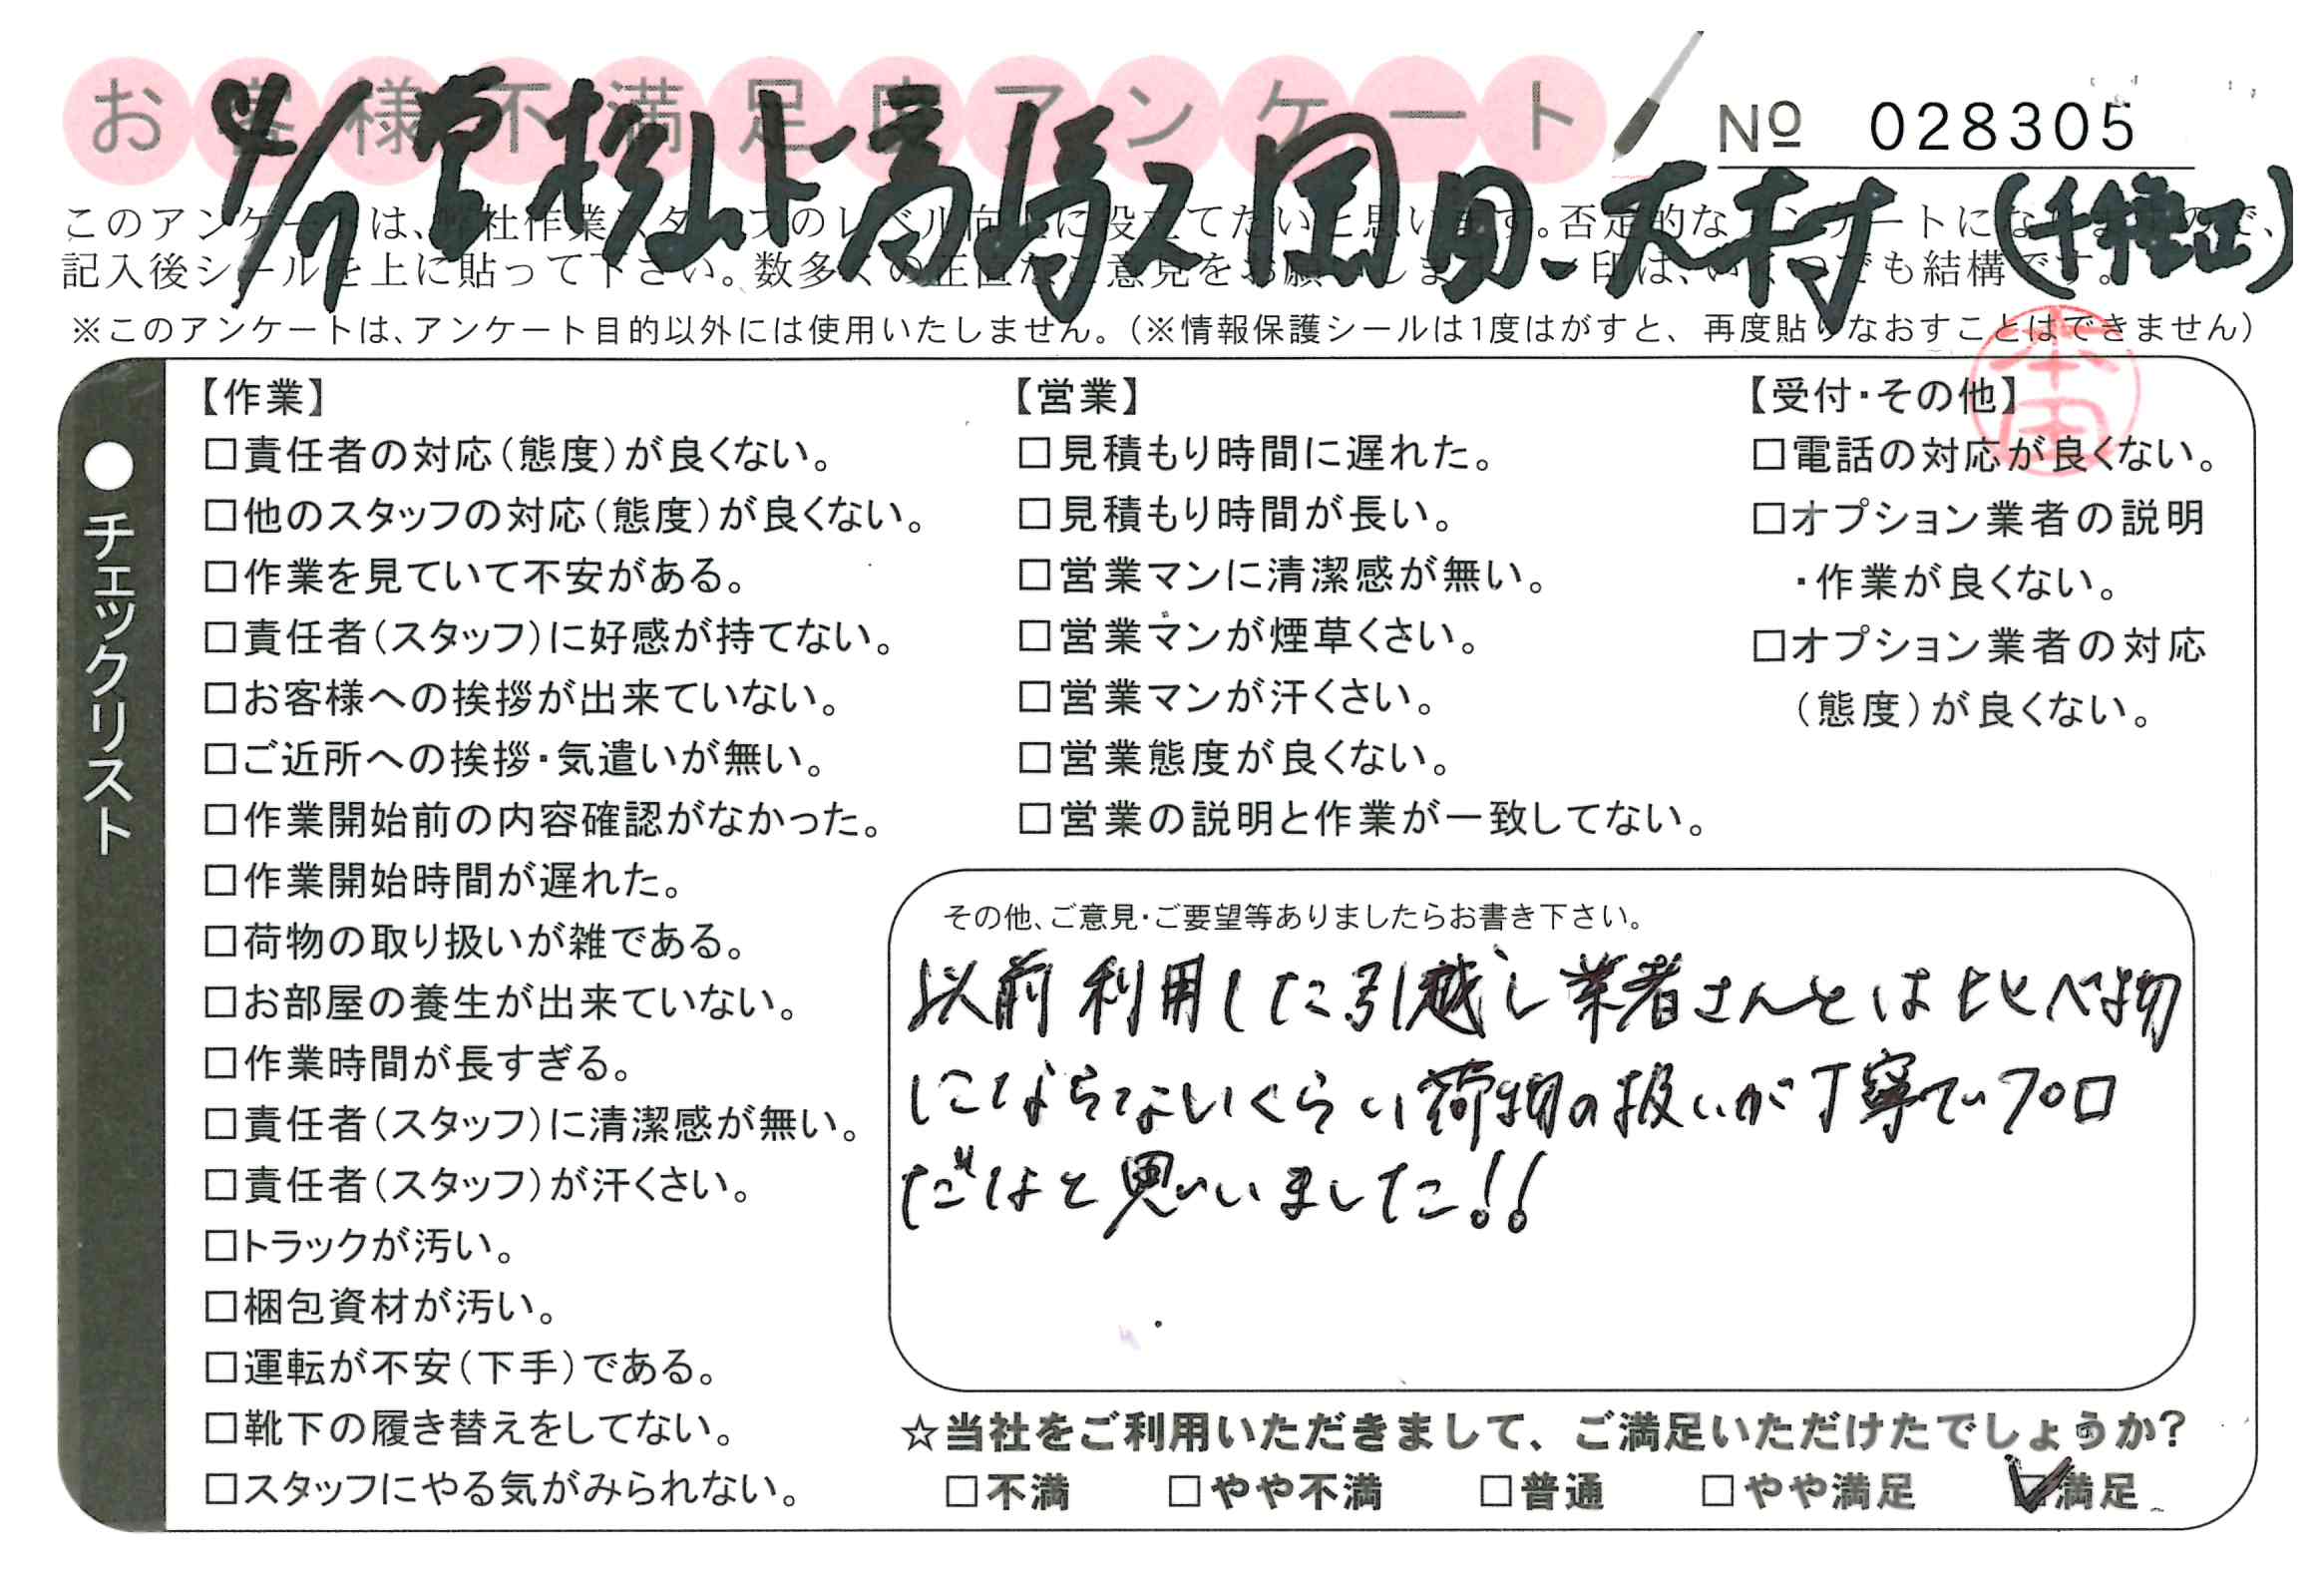 お客様不満足度アンケート
№ 028305
4/17 営 高 岡田 木村 (千
このアンケートは、弊社作業スタッフのレベル向上に役立てたいと思います。否定的なアンケートになりますので、
記入後シールを上に貼って下さい。数多くの正直なご意見をお願いします。レ印は、いくつでも結構です。
※このアンケートは、アンケート目的以外には使用いたしません。(※情報保護シールは1度はがすと、再度貼りなおすことはできません)
本田
●チェックリスト
【作業】
□責任者の対応(態度)が良くない。
□他のスタッフの対応(態度)が良くない。
□作業を見ていて不安がある。
□責任者(スタッフ)に好感が持てない。
□お客様への挨拶が出来ていない。
□ご近所への挨拶・気遣いが無い。
□作業開始前の内容確認がなかった。
□作業開始時間が遅れた。
□荷物の取り扱いが雑である。
□お部屋の養生が出来ていない。
□作業時間が長すぎる。
□責任者(スタッフ)に清潔感が無い。
□責任者(スタッフ)が汗くさい。
□トラックが汚い。
□梱包資材が汚い。
□運転が不安(下手)である。
□靴下の履き替えをしてない。
□スタッフにやる気がみられない。
【営業】
□見積もり時間に遅れた。
□見積もり時間が長い。
□営業マンに清潔感が無い。
□営業マンが煙草くさい。
□営業マンが汗くさい。
□営業態度が良くない。
□営業の説明と作業が一致してない。
【受付・その他】
□電話の対応が良くない。
□オプション業者の説明
・作業が良くない。
□オプション業者の対応
(態度)が良くない。
その他、ご意見・ご要望等ありましたらお書き下さい。
以前利用した引越し業者さんとは比べ物
にならないくらい荷物の扱いが丁寧でプロ
だなと思いました!!
☆当社をご利用いただきまして、ご満足いただけたでしょうか?
□不満 □やや不満 □普通 □やや満足 ☑満足